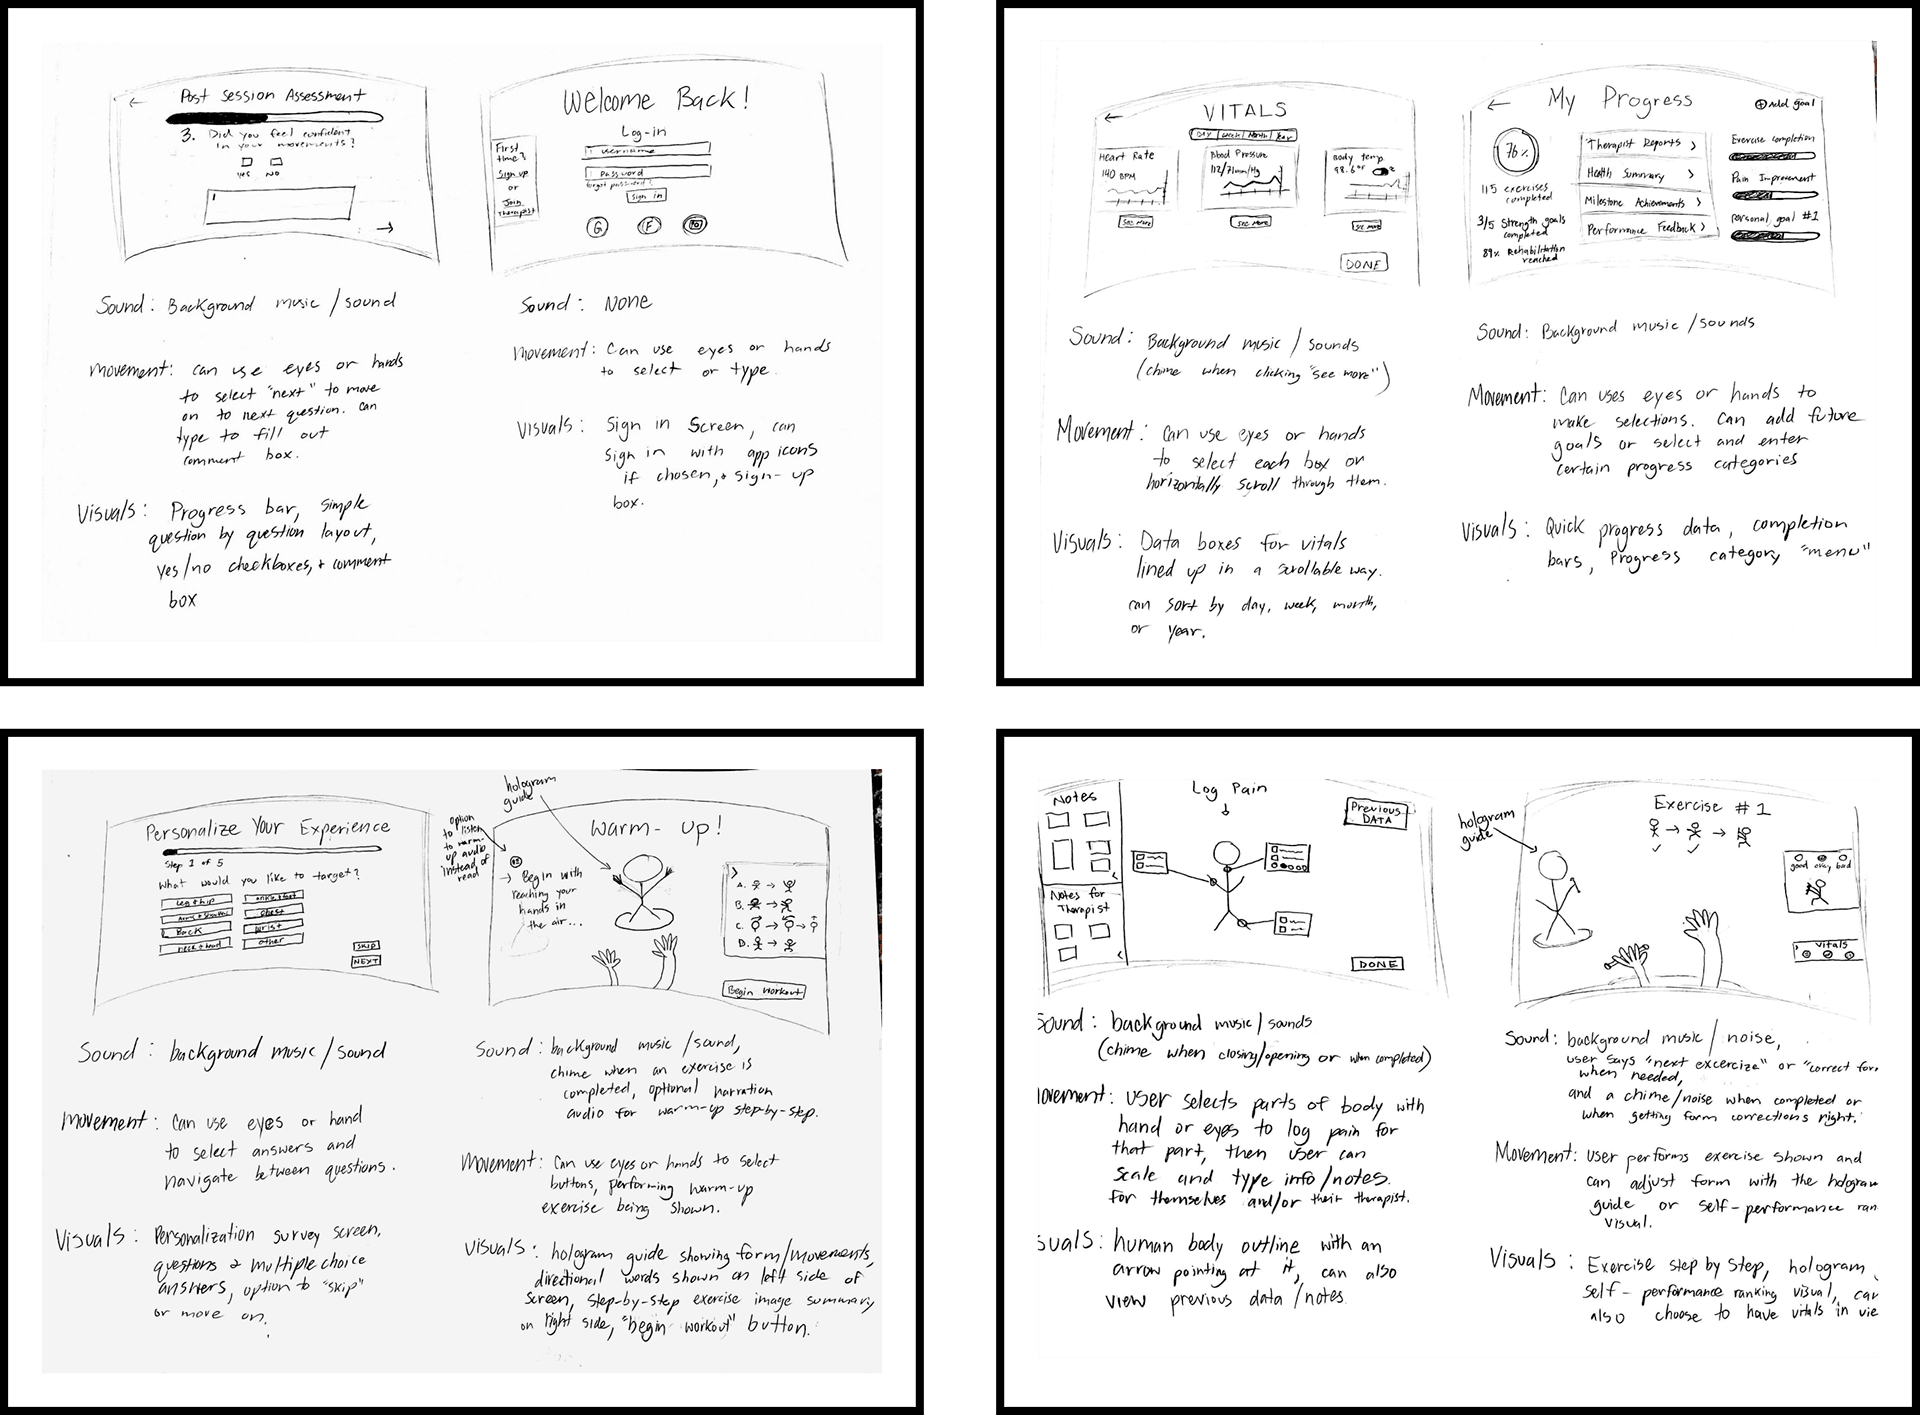 Post Session Assessment
3. Did you feel confident
in your movements?
yes NO
Sound: Background music / sound
Movement: can use eyes or hands
to select "next" to move
on to next question. Can
type to fill out
comment box.
Visuals: Progress bar, simple
question by question layout,
yes/no checkboxes, + comment
box
Welcome Back!
Log-in
First
time?
Sign up
or
Join
therapist
username
password
forgot password?
sign in
G F
Sound: None
Movement: Can use eyes or hands
to select or type.
Visuals: Sign in Screen, can
sign in with app icons
if chosen, + sign-up
box.
VITALS
DAY week Month Year
Heart Rate
140 BPM
see more
Blood Pressure
112/71mm/Hg
see more
Body temp
98.6°F
see more
DONE
Sound: Background music / sounds
(chime when clicking "see more")
Movement: Can use eyes or hands
to select each box or
horizontally scroll through them.
Visuals: Data boxes for vitals
lined up in a scrollable way.
can sort by day, week, month,
or year.
My Progress
Add goal
76%
115 exercises
completed
3/5 Strength goals
completed
89% Rehabilitation
reached
Therapist Reports >
Health Summary >
Milestone Achievements >
Performance Feedback >
Exercise completion
Pain Improvement
personal goal #1
Sound: Background music / sounds
Movement: Can uses eyes or hands to
make selections. Can add future
goals or select and enter
certain progress categories
Visuals: Quick progress data, completion
bars, Progress category "menu"
Personalize Your Experience
Step 1 of 5
What would you like to target?
leg + hip
ankle + foot
arms + shoulder
chest
Back
wrist
neck + head
other
SKIP
NEXT
Sound: background music / sound
Movement: Can use eyes or hand
to select answers and
navigate between questions.
Visuals: Personalization survey screen,
questions & multiple choice
answers, option to "skip"
or move on.
hologram
guide
option
to listen
to warm-
up audio
instead of
read
Warm-up!
→ Begin with
reaching your
hands in
the air...
A. →
B. →
C. → →
D. →
Begin Workout
Sound: background music / sound,
chime when an exercise is
completed, optional narration
audio for warm-up step-by-step.
Movement: Can use eyes or hands to select
buttons, performing warm-up
exercise being shown.
Visuals: hologram guide showing form/movements,
directional words shown on left side of
screen, step-by-step exercise image summary
on right side, "begin workout" button.
Notes
Notes for
Therapist
Log Pain
Previous
DATA
DONE
Sound: background music / sounds
(chime when closing/opening or when completed)
ovement: user selects parts of body with
hand or eyes to log pain for
that part, then user can
scale and type info/notes
for themselves and/or their therapist.
suals: human body outline with an
arrow pointing at it, can also
view previous data / notes.
hologram
guide
Exercise #1
→ →
good okay bad
vitals
Sound: background music / noise,
user says "next excercize" or "correct for
when needed,
and a chime/noise when completed or
when getting form corrections right.
Movement: user performs exercise shown and
can adjust form with the hologram
guide or self-performance ran
visual.
Visuals: Exercise step by step, hologram
self-performance ranking visual, can
also choose to have vitals in vie